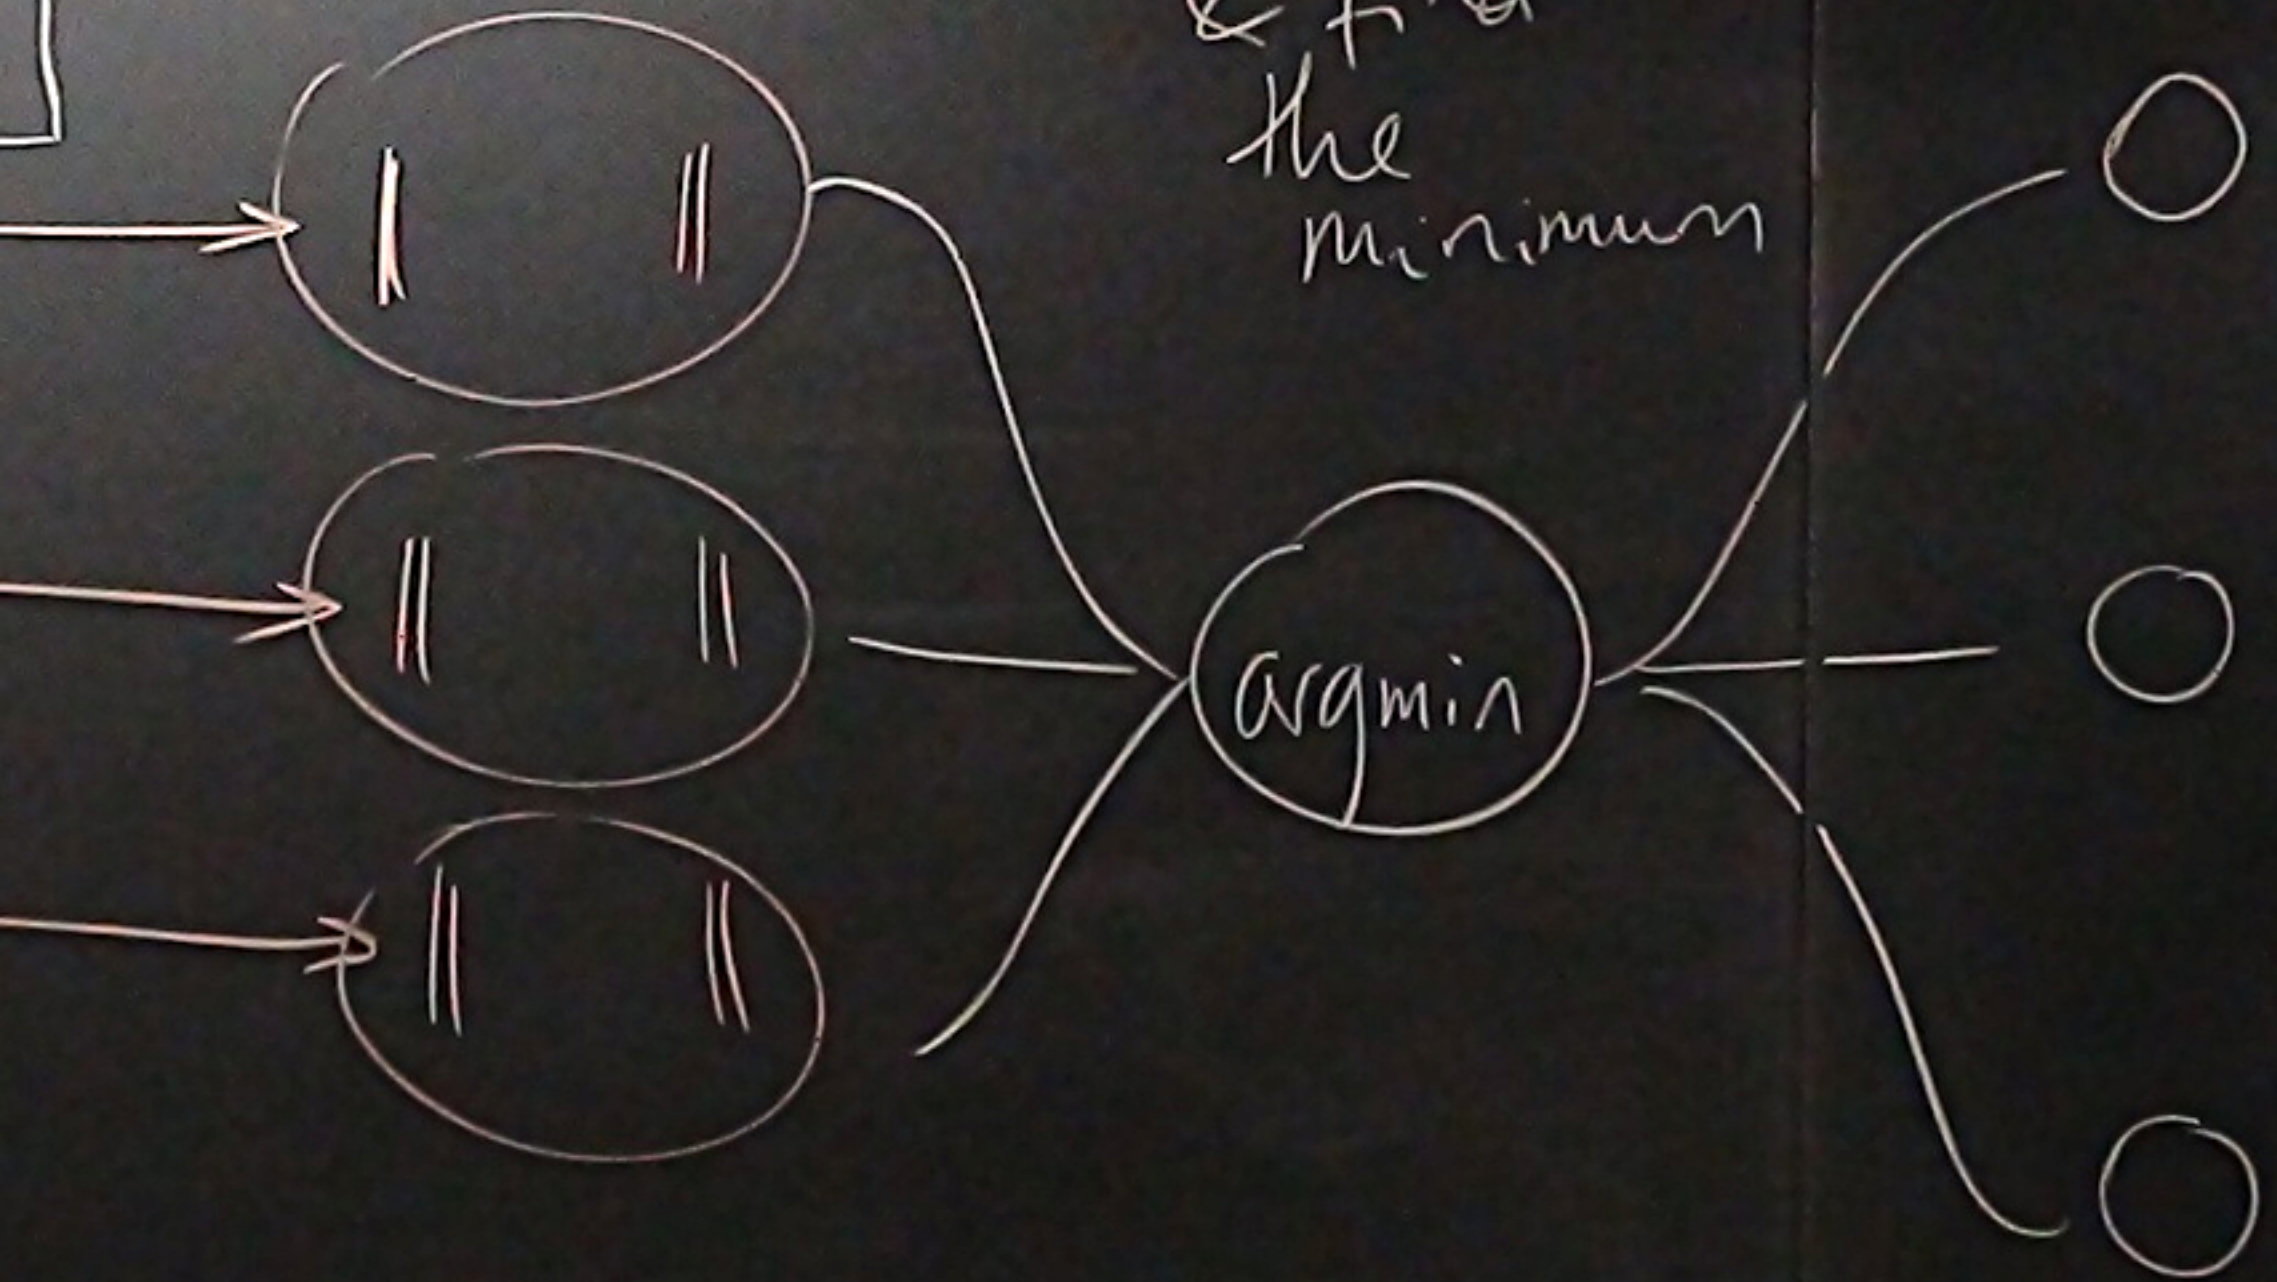 & find
the
minimum
|| ||
|| ||
argmin
|| ||